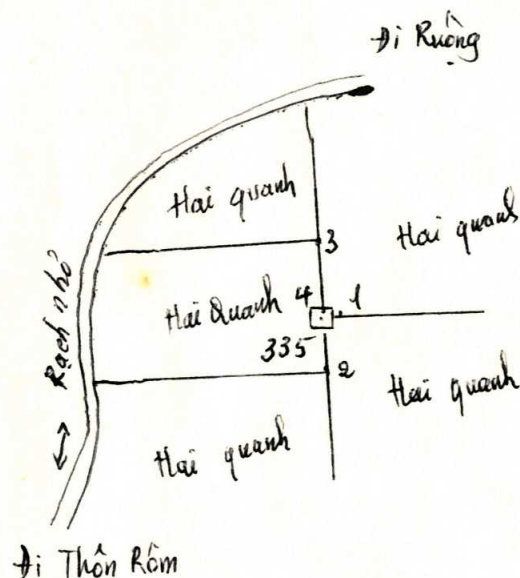 Đi Ruộng
Hai quanh
3
Hai quanh
Rạch nhỏ
Hai Quanh
4
1
335
2
Hai quanh
Hai quanh
Đi Thôn Rôm